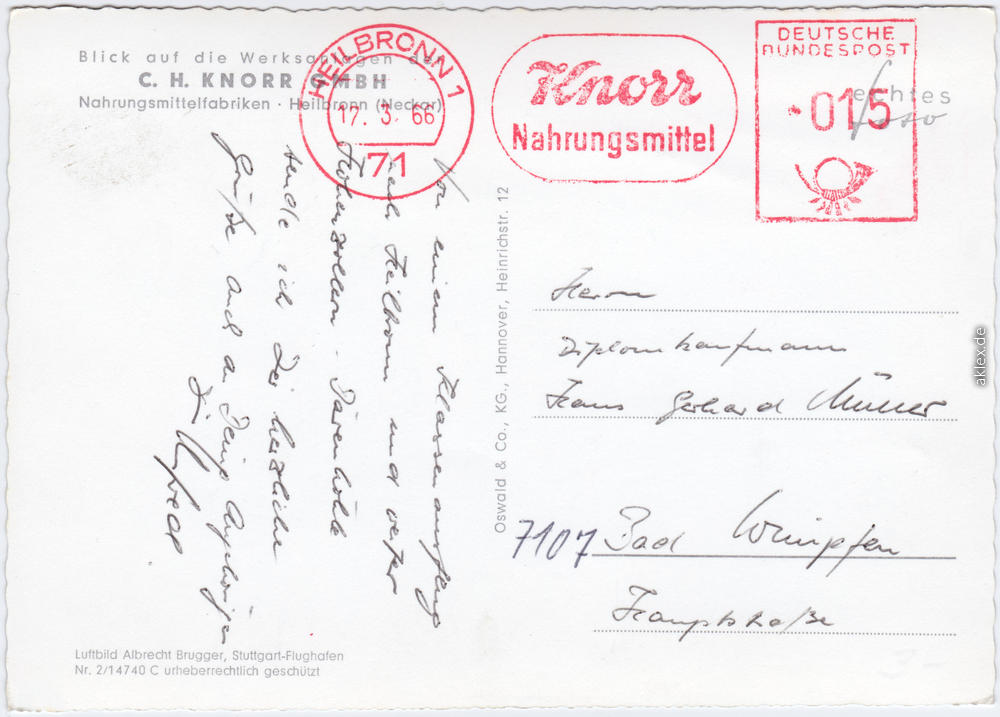 Blick auf die Werksanlagen der
C. H. KNORR GMBH
Nahrungsmittelfabriken · Heilbronn (Neckar)
HEILBRONN 1
17. 3. 66
71
Knorr
Nahrungsmittel
DEUTSCHE
BUNDESPOST
015
echtes
Foto
Von einem Klassenausflug
nach Heilbronn und weiter
Hohenzollern - Bärenhöhle
sende ich Dir herzliche
Grüße auch an Deine Angehörigen
Dein Alfred
Oswald & Co., KG., Hannover, Heinrichstr. 12
Herrn
Diplomkaufmann
Hans Gerhard Müller
7107 Bad Wimpfen
Hauptstraße
Luftbild Albrecht Brugger, Stuttgart-Flughafen
Nr. 2/14740 C urheberrechtlich geschützt
aklex.de